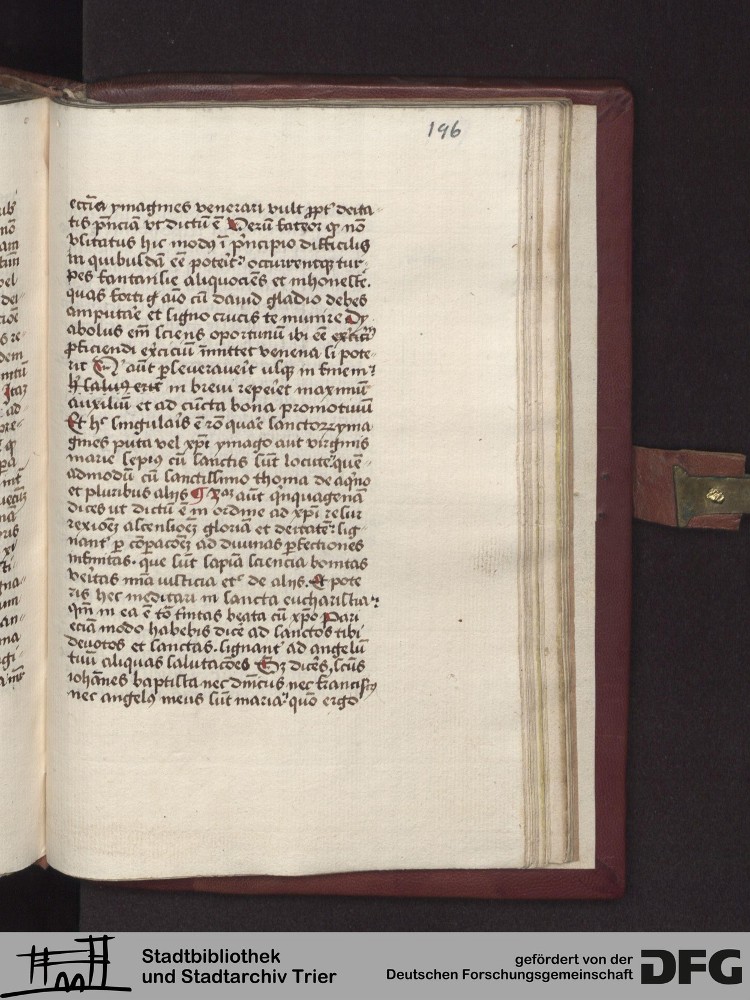 196
eccīa ymagines venerari vult ꝓpt' deita-
tis p̄nciā vt dictū ē Verū fateor ꝙ nō
vsitatus hic modꝰ ī p̄ncipio difficilis
in quibusdā eē poterit occurrentqꝫ tur-
pes fantasie aliquociēs et inhoneste.
quas forti aīo cū dauid gladio debes
amputare et ligno crucis te munire Dy
abolus em̄ sciens oportunū ibi eē
ꝓficiendi exerciciū īmittet venena si pote-
rit aūt ꝑseueraverit vsqꝫ in finem
in brevi reperiet maximū
auxiliū et ad cūcta bona promotivū
Et hͨ singularis ē rō quare sanctoꝝ yma
gines puta vel xp̄i ymago aut virginis
marie sepiꝰ cū sanctis sūt locute quē-
admodū cū sanctissimo thoma de aq̄no
et pluribus alijs aūt qͥnquagenā
dices vt dictū ē in ordine ad xp̄i resur
rexioēꝫ ascensioēꝫ gloriā et deitatē sig-
nant' ꝑ cōꝑacoēꝫ ad diuinas ꝑfectiones
infinitas. que sūt sapiā sciencia bonitas
veritas iusticia etͨ de alijs. Et pote
ris hec meditari in sancta eucharistia
qm̄ in ea ē tō tinitas beata cū xp̄o Pari
eciam modo habebis dicē ad sanctos tibi
devotos et sanctas. signant' ad angelū
tuū aliquas salutacōes Eꝫ dices, scūs
iohānes baptista nec dn̄icus nec franciscꝰ
nec angelꝰ meus sūt maria quō ergo
Stadtbibliothek
und Stadtarchiv Trier
gefördert von der
Deutschen Forschungsgemeinschaft
DFG